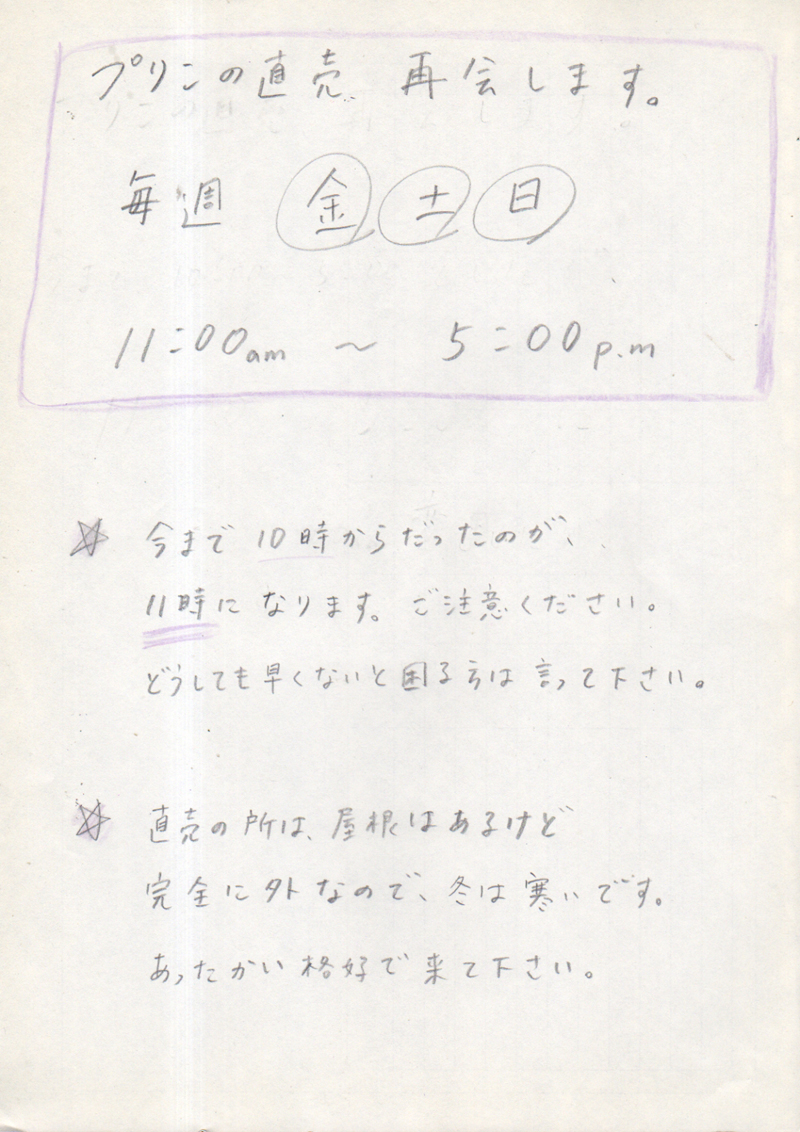 プリンの直売、再会します。
毎週 金 土 日
11:00am 〜 5:00p.m
☆ 今まで10時からだったのが、
11時になります。ご注意ください。
どうしても早くないと困る方は言って下さい。
☆ 直売の所は、屋根はあるけど
完全に外なので、冬は寒いです。
あったかい格好で来て下さい。